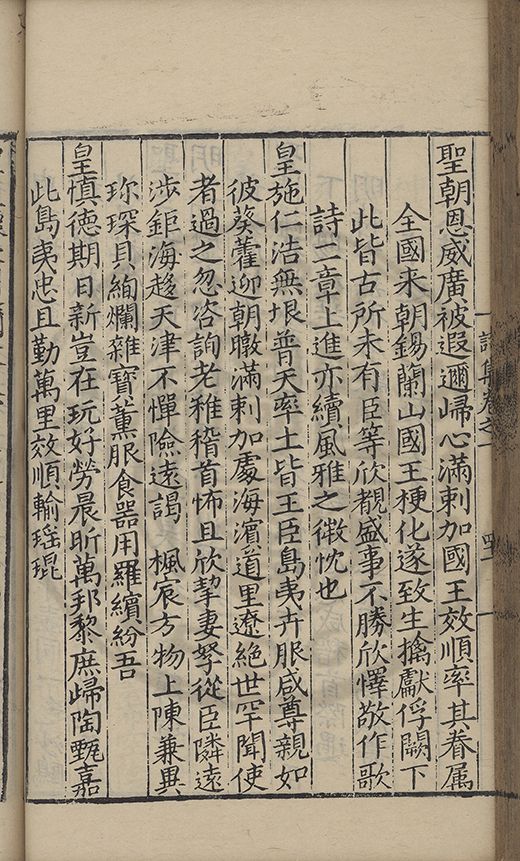 聖朝恩威廣被遐邇歸心滿剌加國王效順率其眷属
全國来朝錫蘭山國王梗化遂致生擒獻俘闕下
此皆古所未有臣等欣覩盛事不勝欣懌敬作歌
詩二章上進亦續風雅之微忱也
皇施仁浩無垠普天率土皆王臣島夷卉服咸尊親如
彼葵藿迎朝暾滿剌加處海濵道里遼絶世罕聞使
者過之忽咨詢老稚稽首怖且欣挈妻孥從臣隣遠
涉鉅海趍天津不憚險遠謁 楓宸方物上陳兼異
珎琛貝絢爛雜寳薫服食器用羅繽紛吾
皇慎德期日新豈在玩好勞晨昕萬邦黎庶歸陶甄嘉
此島夷忠且勤萬里效順輸瑶琨
詩集卷之一
四一